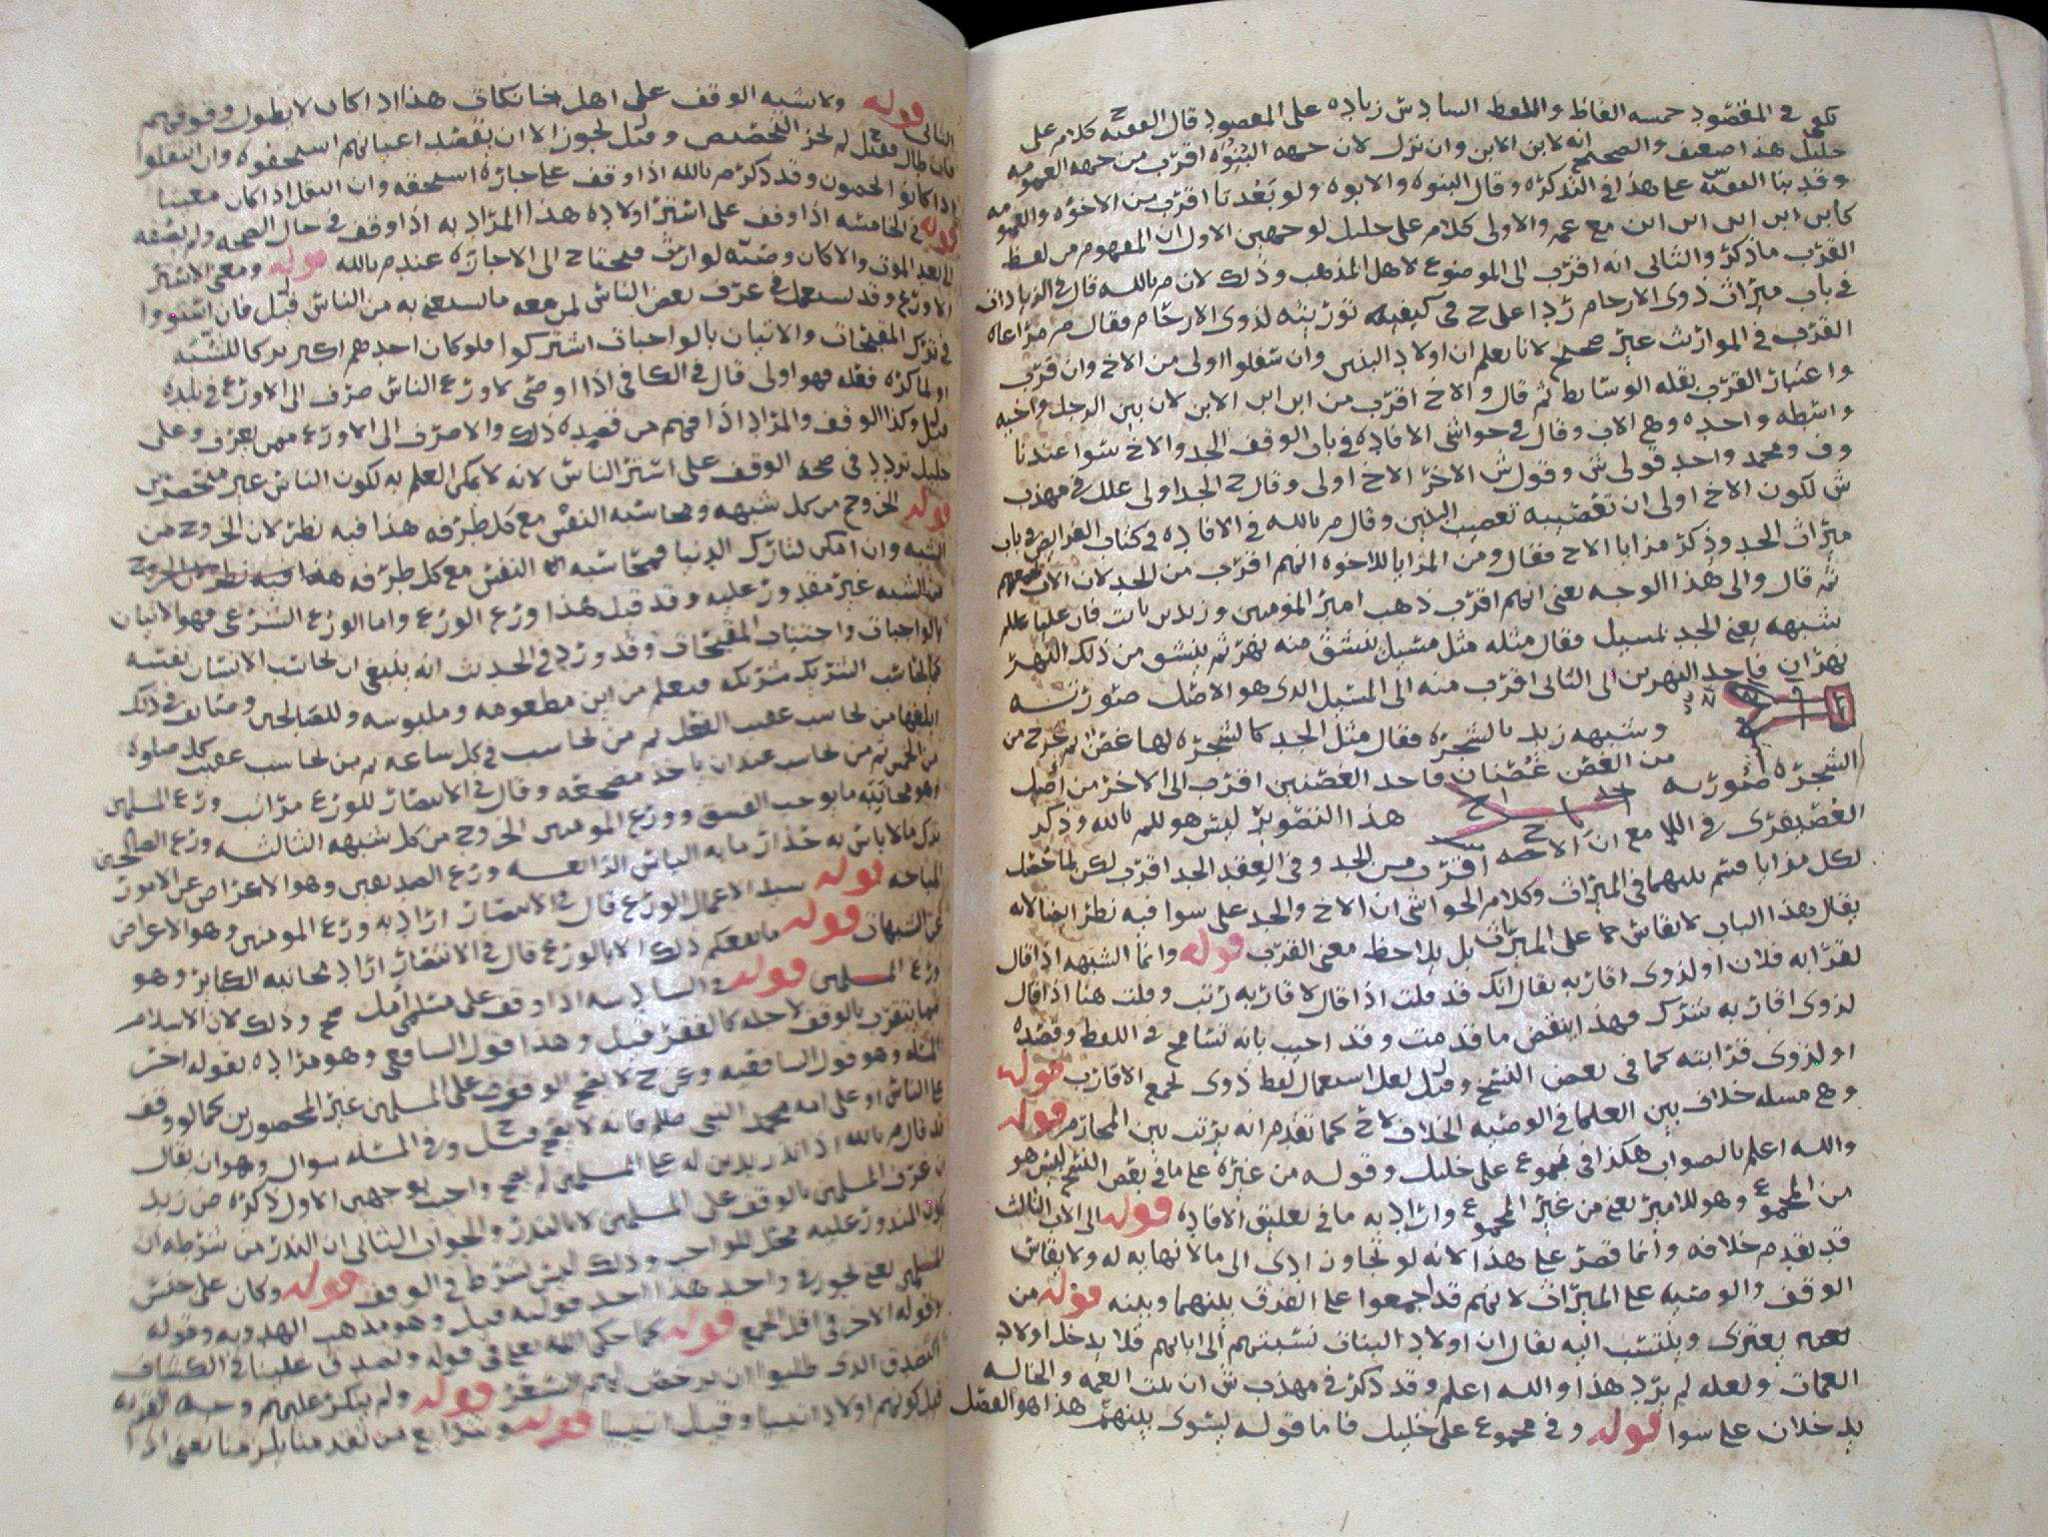 تكفي في المقصود خمسه الفاظ واللفظ السادس زياده على المقصود قال الفقيه ح كلام على
خليل هذا ضعيف والصحيح انه لابن الابن وان نزل لان جهه البنوه اقرب من جهه العمومه
وقد بنا الفقيه على هذا في التذكره وقال البنوه والابوه ولو بعدتا اقرب من الاخوه والعمومه
كابن ابن ابن ابن ابن مع عم والاولى كلام على خليل لوجهين الاول ان المفهوم من لفظ
القرب ما ذكر والثاني انه اقرب الى الموضوع لاهل المذهب وذلك لان م بالله قال في الزيادات
في باب ميراث ذوي الارحام ردا على ح في كيفيه توريثه لذوي الارحام فقال م مراعاه
القرب في المواريث غير صحيح لانا نعلم ان اولاد البنين وان سفلوا اولى من الاخ وان قرب
واعتبار القرب بقله الوسائط ثم قال والاخ اقرب من ابن ابن الابن لان بين الرجل واخيه
واسطه واحده وهي الاب وقال في حواشي الافاده في باب الوقف الجد والاخ سوا عندنا
وف ومحمد واحد قولي ش وقول ش الاخر الاخ اولى وقال ح الجد اولى علل في مهذب
ش لكون الاخ اولى ان تعصيبه تعصيب البنين وقال م بالله في الافاده في كتاب الفرايض في باب
ميراث الجد وذكر مزايا الاخ فقال ومن المزايا للاخوه انهم اقرب من الجد لان الاب يجمعهم
ثم قال والى هذا الوجه يعني انهم اقرب ذهب امير المومنين وزيد بن ثابت فان عليا عللم
شبهه يعني الجد بمسيل فقال مثله مثل مسيل ينشق منه نهر ثم ينشق من ذلك النهر
نهران فاحد النهرين الى الثاني اقرب منه الى المسيل الذي هو الاصل صورته
وشبهه زيد بالشجره فقال مثل الجد كالشجره لها غصن ثم يخرج من
من الغصن غصنان فاحد الغصنين اقرب الى الاخر من اصل
الشجره صورته
هذا التصوير ليس هو للم بالله وذكر
لكل مزايا
يقال بهذا الباب لا يقاس على الميراث بل يلاحظ معنى القرب قوله وانما الشبهه اذا قال
لقرابه فلان او لذوي اقاربه يقال انك قد قلت اذا قال لاقاربه رتب وقلت هنا اذا قال
لذوي اقاربه شرك فهذا ينقض ما قدمت وقد اجيب بانه تسامح في اللفظ وقصده
او لذوي قرابته كما في بعض النسخ وقيل لعل استعمال لفظ ذوي لجمع الاقارب قوله
وهي مسله خلاف بين العلما في الوصيه الخلاف لاح كما تقدم انه يرتب بين المحارم قوله
والله اعلم بالصواب هكذا في مجموع على خليل وقوله من غيره على ما في بعض النسخ ليس هو
من المجموع وهو للامير يعني من غير المجموع واراد به ما في تعليق الافاده قوله الى الاب الثالث
قد تقدم خلافه وانما قصر على هذا لانه لو تجاوز ادى الى ما لا نهايه له ولا يقاس
الوقف والوصيه على الميراث لانهم قد اجمعوا على الفرق بينهما وبينه قوله من
يعتزى وينتسب اليه يقال ان اولاد البنات نسبتهم الى ابائهم فلا يدخل اولاد
العمات ولعله لم يرد هذا والله اعلم وقد ذكر في مهذب ش ان بنت العمه والخاله
يدخلان على سوا قوله وفي مجموع على خليل فاما قوله ليستوى بينهم هذا هو الفصل
الثاني قوله ولا يشبه الوقف على اهل الخانكات هذا اذا كان لا يطول وقوفهم
فان طال فقيل لم يجز التخصيص وقيل يجوز الا ان يقصد اعيانهم استحقوه وان انتقلوا
اذا كانوا يحصون وقد ذكر م بالله اذا وقف على جاره استحقه وان انتقل اذا كان معينا
قوله في الخامسه اذا وقف على اشتر اولاده هذا المراد به اذا وقف في حال الصحه ولم يضفه
الى بعد الموت والا كان وصيه لوارث فيحتاج الى الاجازه عند م بالله قوله ومعنى الاستر
الاورع وقد يستعمل في عرف بعض الناس لمن معه ما يستغني به من الناس قيل فان استووا
في ترك المقبحات والاتيان بالواجبات اشتركوا فلو كان احدهم اكثر تركا للشبه
او لما كره فعله فهو اولى قال في الكافي اذا اوصى لاورع الناس صرف الى الاورع في بلده
قيل وكذا الوقف والمراد اذا فهم من قصده ذلك والا صرف الى الاورع ممن يعرف وعلى
خليل تردد في صحه الوقف على استر الناس لانه لا يمكن العلم به لكون الناس غير منحصرين
قوله الخروج من كل شبهه ومحاسبه النفس مع كل طرفه هذا فيه نظر لان الخروج من
الشبه وان امكن لتارك الدنيا فمحاسبه النفس مع كل طرفه
غير مقدور عليه وقد قيل هذا ورع الورع واما الورع الشرعي فهو الاتيان
بالواجبات واجتناب المقبحات وقد ورد في الحديث انه ينبغي ان يحاسب الانسان نفسه
كما يحاسب الشريك شريكه فيعلم من اين مطعومه وملبوسه وللصالحين ومتانف في ذلك
ابلغها من يحاسب عقيب الفعل ثم من يحاسب في كل ساعه ثم من يحاسب عقيب كل صلوه
من الخمس ثم من يحاسب عند ان ياخذ مضجعه وقال في الانتصار للورع مراتب ورع المسلمين
وهو مجانبه ما يوجب الفسق وورع المومنين الخروج من كل شبهه الثالثه ورع الصالحين
ترك ما لا باس به حذار ما به الباس الرابعه ورع الصديقين وهو الاعراض عن الامور
المباحه قوله سيد الاعمال الورع قال في الانتصار اراد به ورع المومنين وهو الاعراض
عن الشبهات قوله ذلك الا بالورع قال في الانتصار اراد مجانبه الكبائر وهو
ورع المسلمين قوله في السادسه اذا وقف على مسلمي صح وذلك لان الاسلام
مما يتقرب بالوقف لاجله كالفقر قيل وهذا قول الشافعي وهو مراده بقوله اختر
المثله وهو قول الشافعيه وعن ح لا يصح الوقوف على المسلمين غير المحصورين كما لو وقف
على الناس او على امه محمد النبي صلعم فانه لا يصح قيل ح ورد في المسله سوال وهو ان يقال
قد قال م بالله اذا نذر بدين له على المسلمين لم يصح واجيب بوجهين الاول ذكره ض زيد
ان عرف المسلمين بالوقف على المسلمين لا بالنذر والجواب الثاني ان النذر من شرطه ان
يكون المنذور عليه محل للواجب وذلك ليس بشرط في الوقف قوله وكان على جنس
المسلمين يعني يجوز في واحد هذا احد قوليه قيل وهو مذهب الهدويه وقوله
وقوله الاخر في اقل الجمع قوله كما حكى الله تعالى في قوله وتصدق علينا في الكشاف
التصدق الذي طلبوا ان يرخص لهم السعر قوله ولم ينكر عليهم وجه القربه
قيل كونهم اولاد انبيا وقيل انبيا قوله